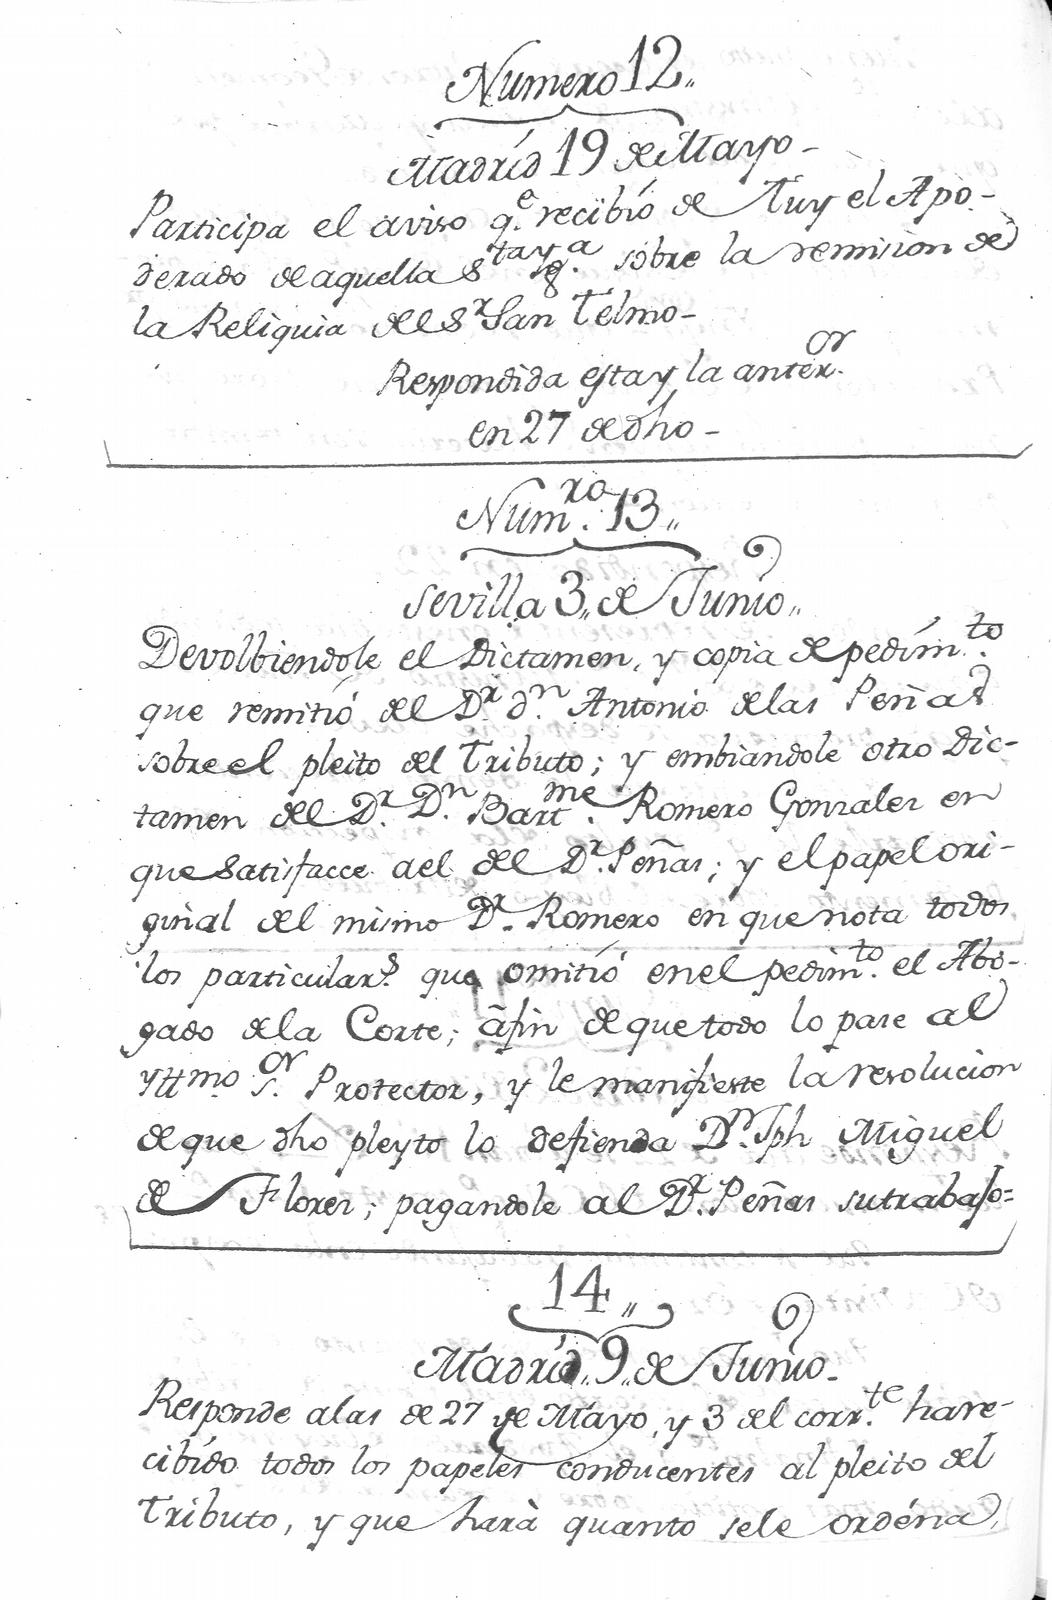 Numero 12,,
Madrid 19 de Mayo-
Participa el aviso q.e recibió de Tuy el Apo-
derado de aquella S.ta yg.a sobre la remision de
la Reliquia del S.r San Telmo-
Respondida esta y la anter.or
en 27 de dho-
Num.ro 13,,
Sevilla 3,, de Junio,,
Devolbiendole el Dictamen, y copia de pedim.to
que remitió del D.r d.n Antonio de las Peñas
sobre el pleito del Tributo; y embiandole otro Dic-
tamen del D.r D.n Bart.me Romero Gonzales en
que Satisfacce a el del D.r Peñas; y el papel ori-
ginal del mismo D.r Romero en que nota todos
los particular.s que omitió en el pedim.to el Abo-
gado de la Corte; áfin de que todo lo pase al
yttmo. s.or Protector, y le manifieste la resolucion
de que dho pleyto lo defienda D.n Jph Miguel
de Flores; pagandole al D.r Peñas su trabajo=
14,,
Madrid,, 9,, de Junio-
Responde a las de 27 de Mayo, y 3 del corr.te ha re-
cibído todos los papeles conducentes al pleito del
Tributo, y que harà quanto se le ordéna,